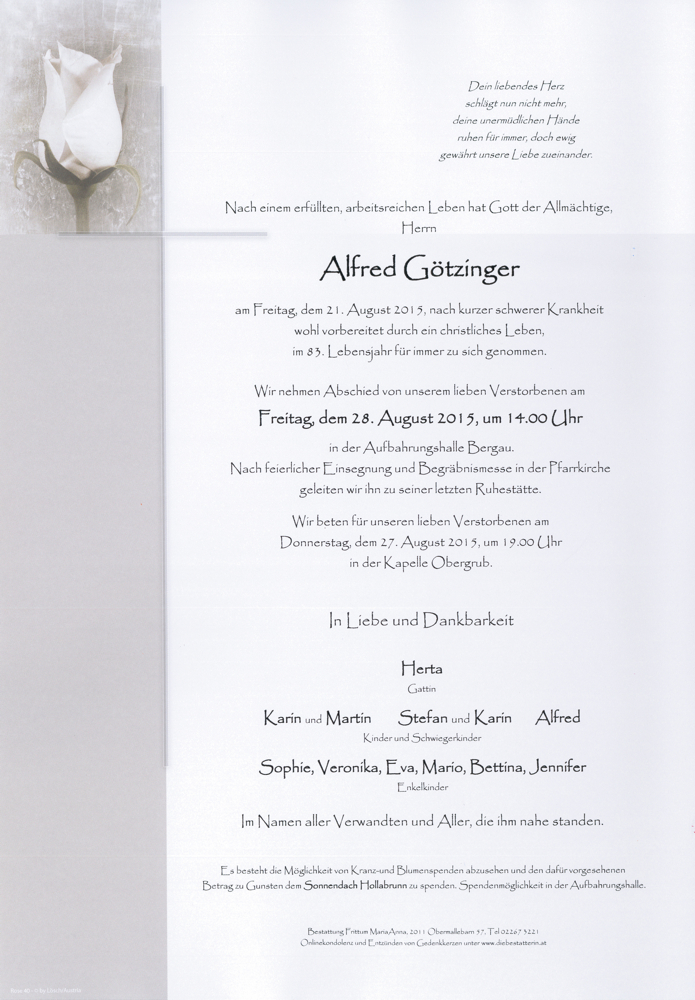 Dein liebendes Herz
schlägt nun nicht mehr,
deine unermüdlichen Hände
ruhen für immer, doch ewig
gewährt unsere Liebe zueinander.
Nach einem erfüllten, arbeitsreichen Leben hat Gott der Allmächtige,
Herrn
Alfred Götzinger
am Freitag, dem 21. August 2015, nach kurzer schwerer Krankheit
wohl vorbereitet durch ein christliches Leben,
im 83. Lebensjahr für immer zu sich genommen.
Wir nehmen Abschied von unserem lieben Verstorbenen am
Freitag, dem 28. August 2015, um 14.00 Uhr
in der Aufbahrungshalle Bergau.
Nach feierlicher Einsegnung und Begräbnismesse in der Pfarrkirche
geleiten wir ihn zu seiner letzten Ruhestätte.
Wir beten für unseren lieben Verstorbenen am
Donnerstag, dem 27. August 2015, um 19.00 Uhr
in der Kapelle Obergrub.
In Liebe und Dankbarkeit
Herta
Gattin
Karin und Martin Stefan und Karin Alfred
Kinder und Schwiegerkinder
Sophie, Veronika, Eva, Mario, Bettina, Jennifer
Enkelkinder
Im Namen aller Verwandten und Aller, die ihm nahe standen.
Es besteht die Möglichkeit von Kranz-und Blumenspenden abzusehen und den dafür vorgesehenen
Betrag zu Gunsten dem Sonnendach Hollabrunn zu spenden. Spendenmöglichkeit in der Aufbahrungshalle.
Bestattung Frittum MariaAnna, 2011 Obermallebarn 37, Tel 02267 3221
Onlinekondolenz und Entzünden von Gedenkkerzen unter www.diebestatterin.at